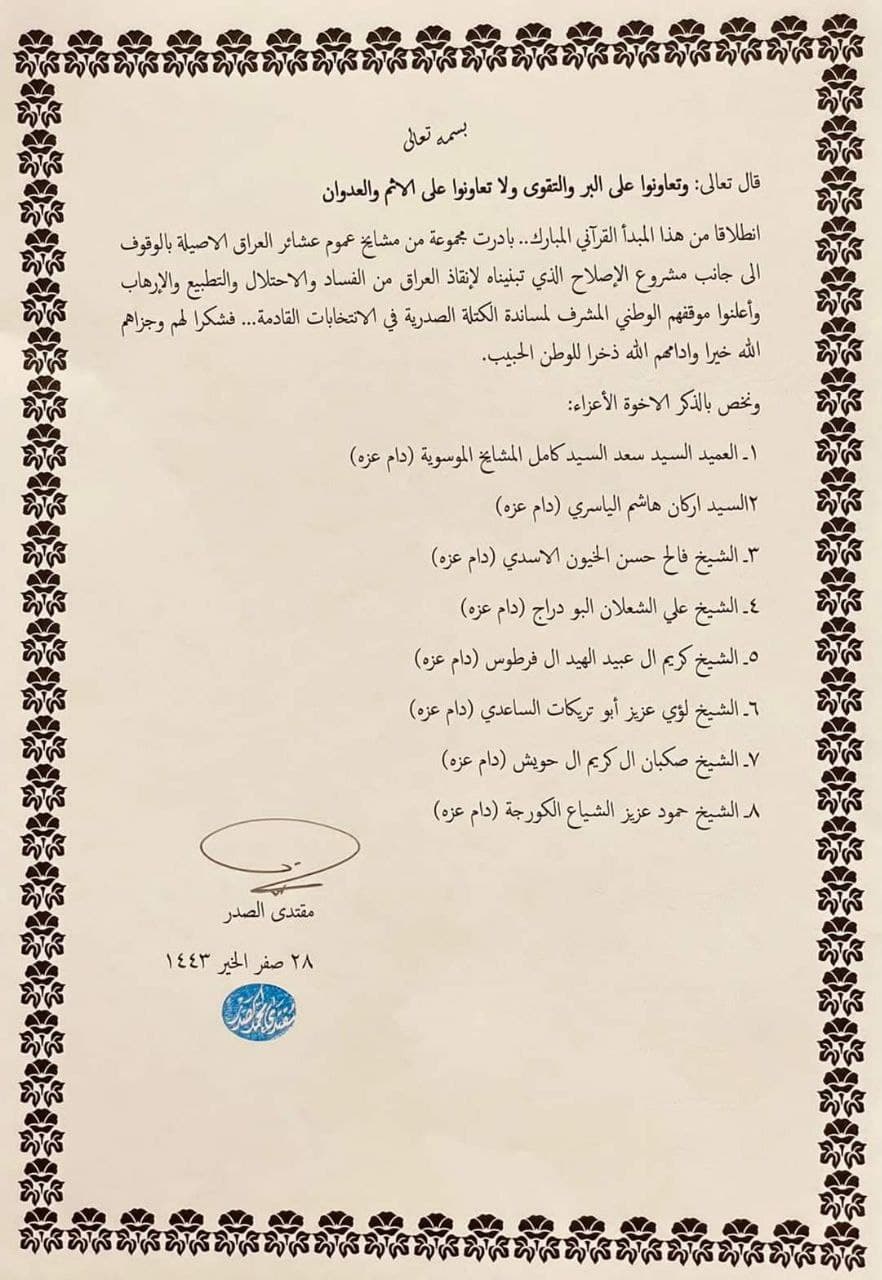 بسمه تعالى
قال تعالى: وتعاونوا على البر والتقوى ولا تعاونوا على الاثم والعدوان
انطلاقا من هذا المبدأ القرآني المبارك.. بادرت مجموعة من مشايخ عموم عشائر العراق الاصيلة بالوقوف
الى جانب مشروع الإصلاح الذي تبنيناه لإنقاذ العراق من الفساد والاحتلال والتطبيع والإرهاب
وأعلنوا موقفهم الوطني المشرف لمساندة الكتلة الصدرية في الانتخابات القادمة... فشكرا لهم وجزاهم
الله خيرا وادامهم الله ذخرا للوطن الحبيب.
ونخص بالذكر الاخوة الأعزاء:
١ـ العميد السيد سعد السيد كامل المشايخ الموسوية (دام عزه)
٢السيد اركان هاشم الياسري (دام عزه)
٣ـ الشيخ فالح حسن الخيون الاسدي (دام عزه)
٤ـ الشيخ علي الشعلان البو دراج (دام عزه)
٥ـ الشيخ كريم ال عبيد الهيد ال فرطوس (دام عزه)
٦ـ الشيخ لؤي عزيز أبو تريكات الساعدي (دام عزه)
٧ـ الشيخ صكبان ال كريم ال حويش (دام عزه)
٨ـ الشيخ حمود عزيز الشياع الكورجة (دام عزه)
مقتدى الصدر
٢٨ صفر الخير ١٤٤٣